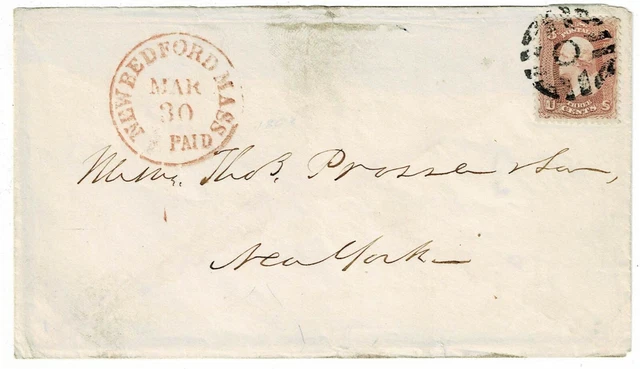 NEW BEDFORD MASS
MAR
30
PAID
U THREE S
CENTS
Messrs. Thos. Prosser & Son,
New York